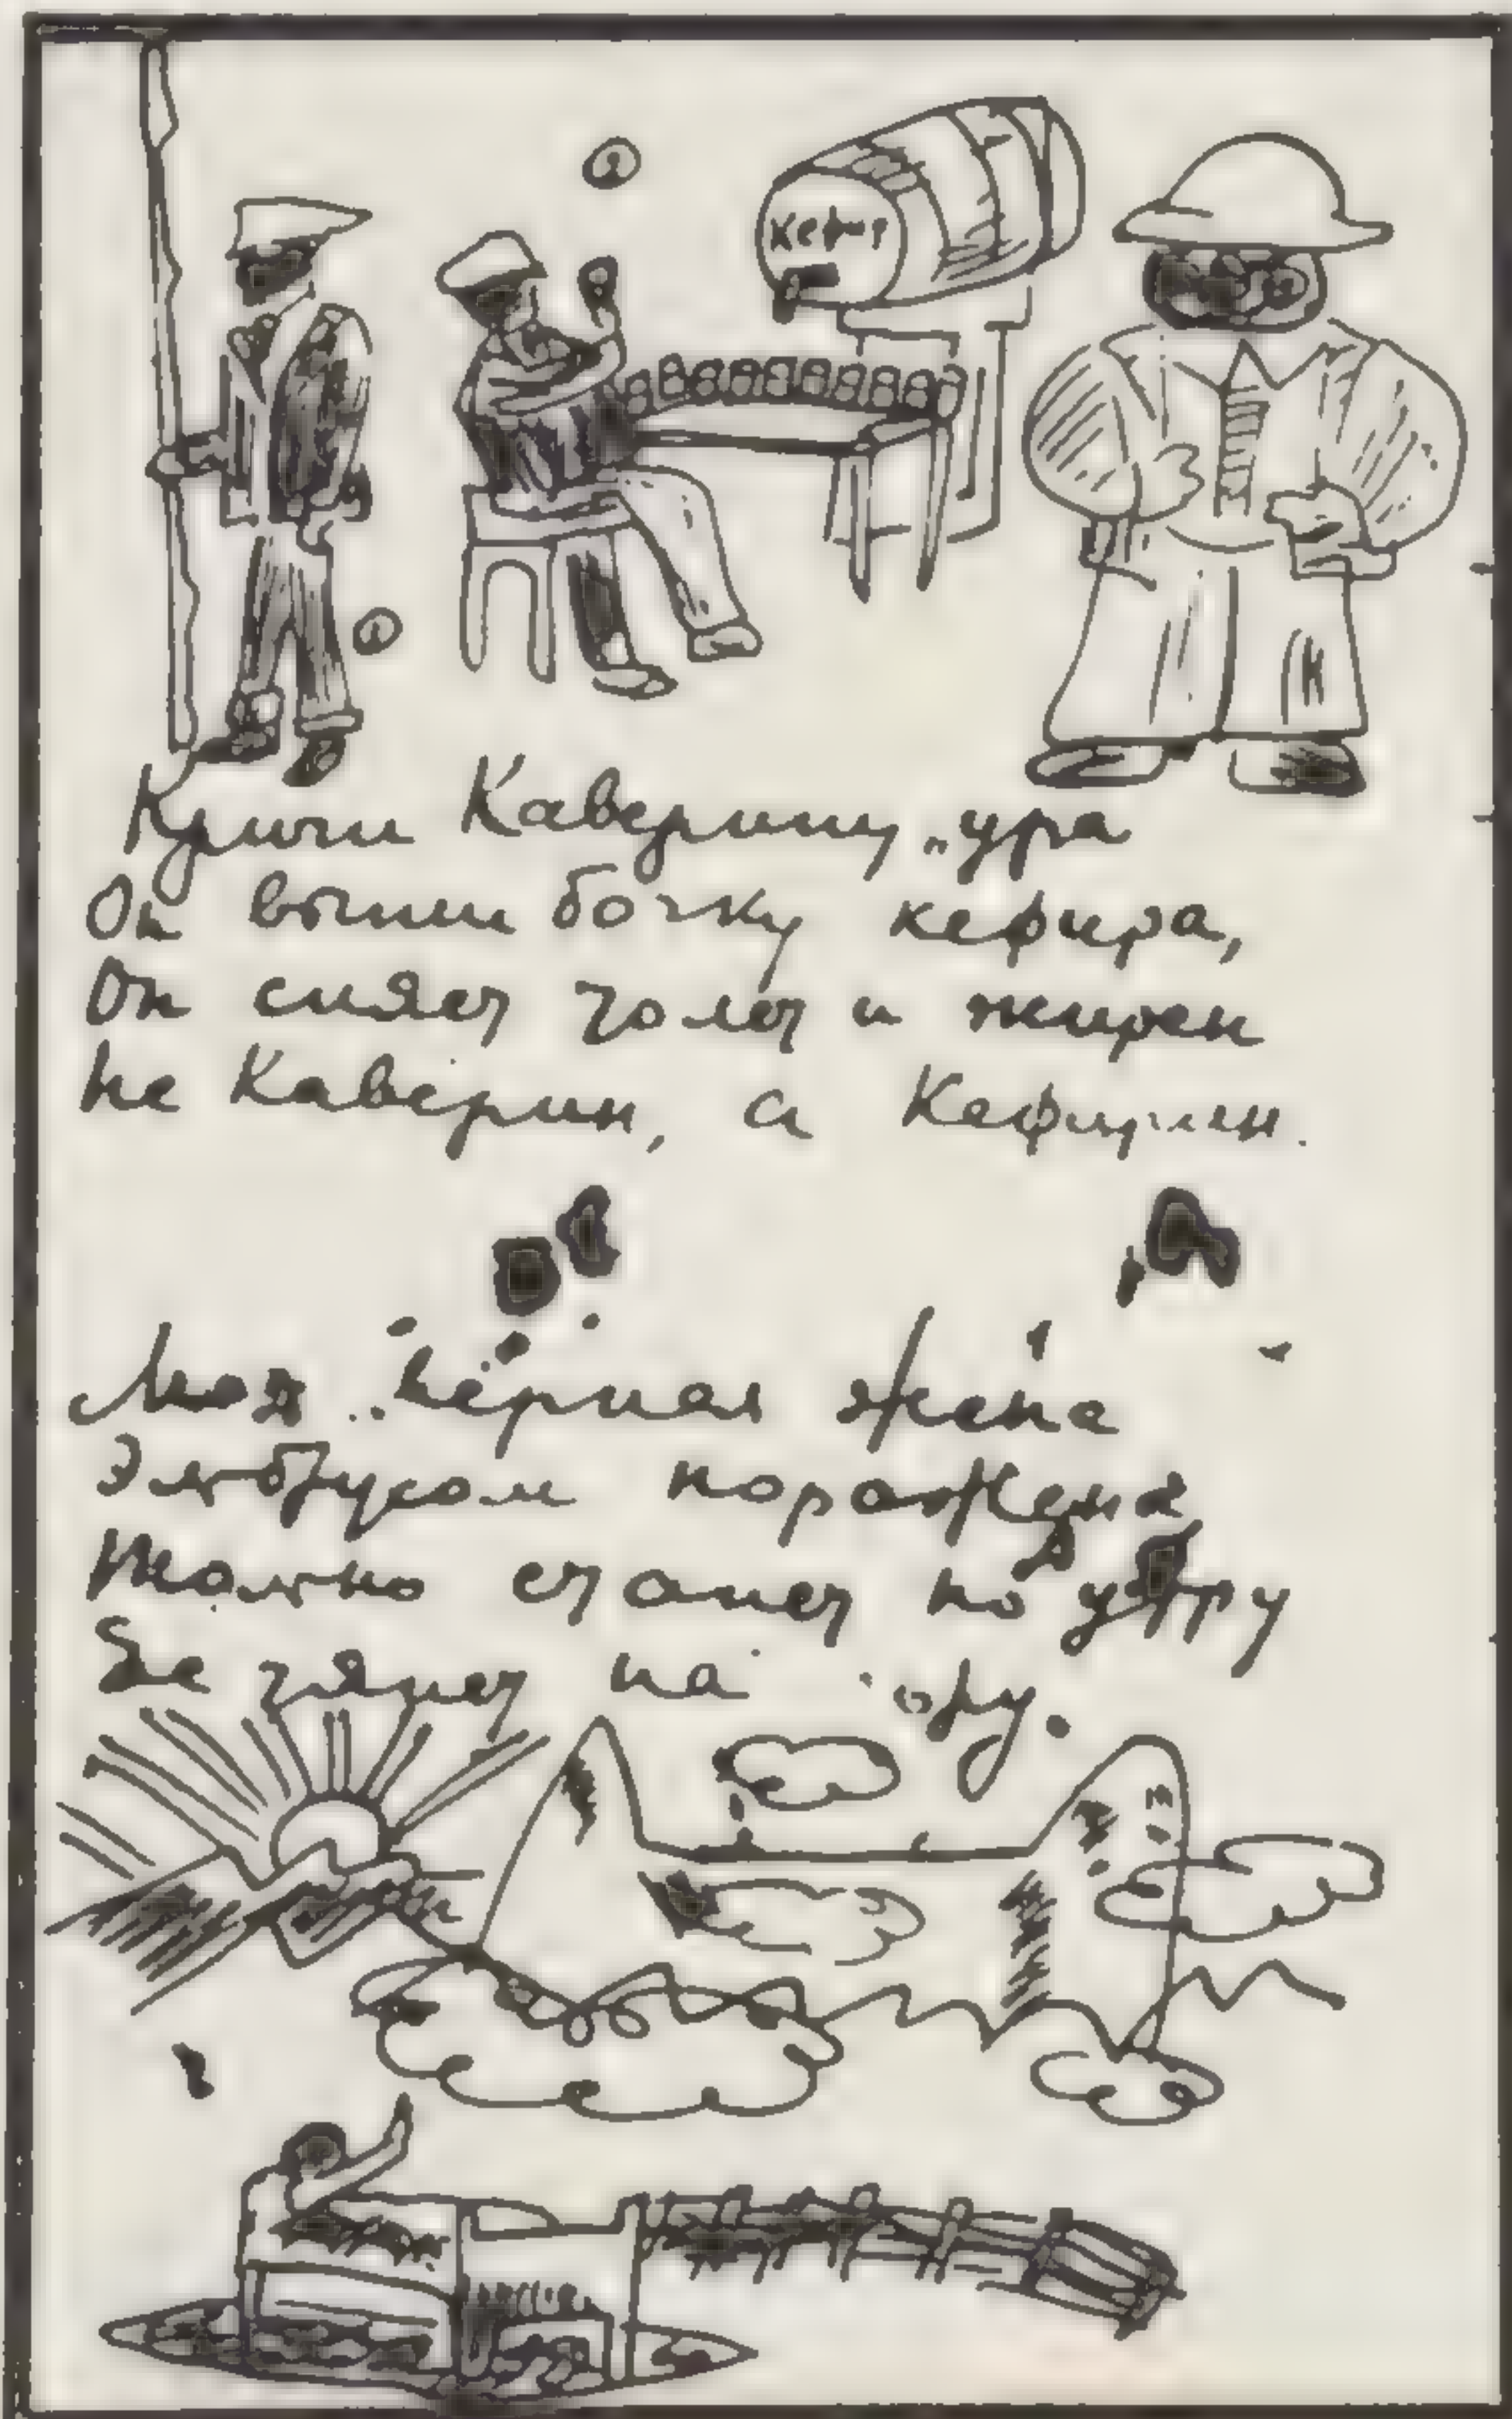 кефир
Кричи Каверину „ура
Он выпил бочку кефира,
Он сияет толст и жирен
Не Каверин, а Кефирин.
Моя верная жена
Эльбрусом поражена
Только станет поутру
Все глянет на гору.